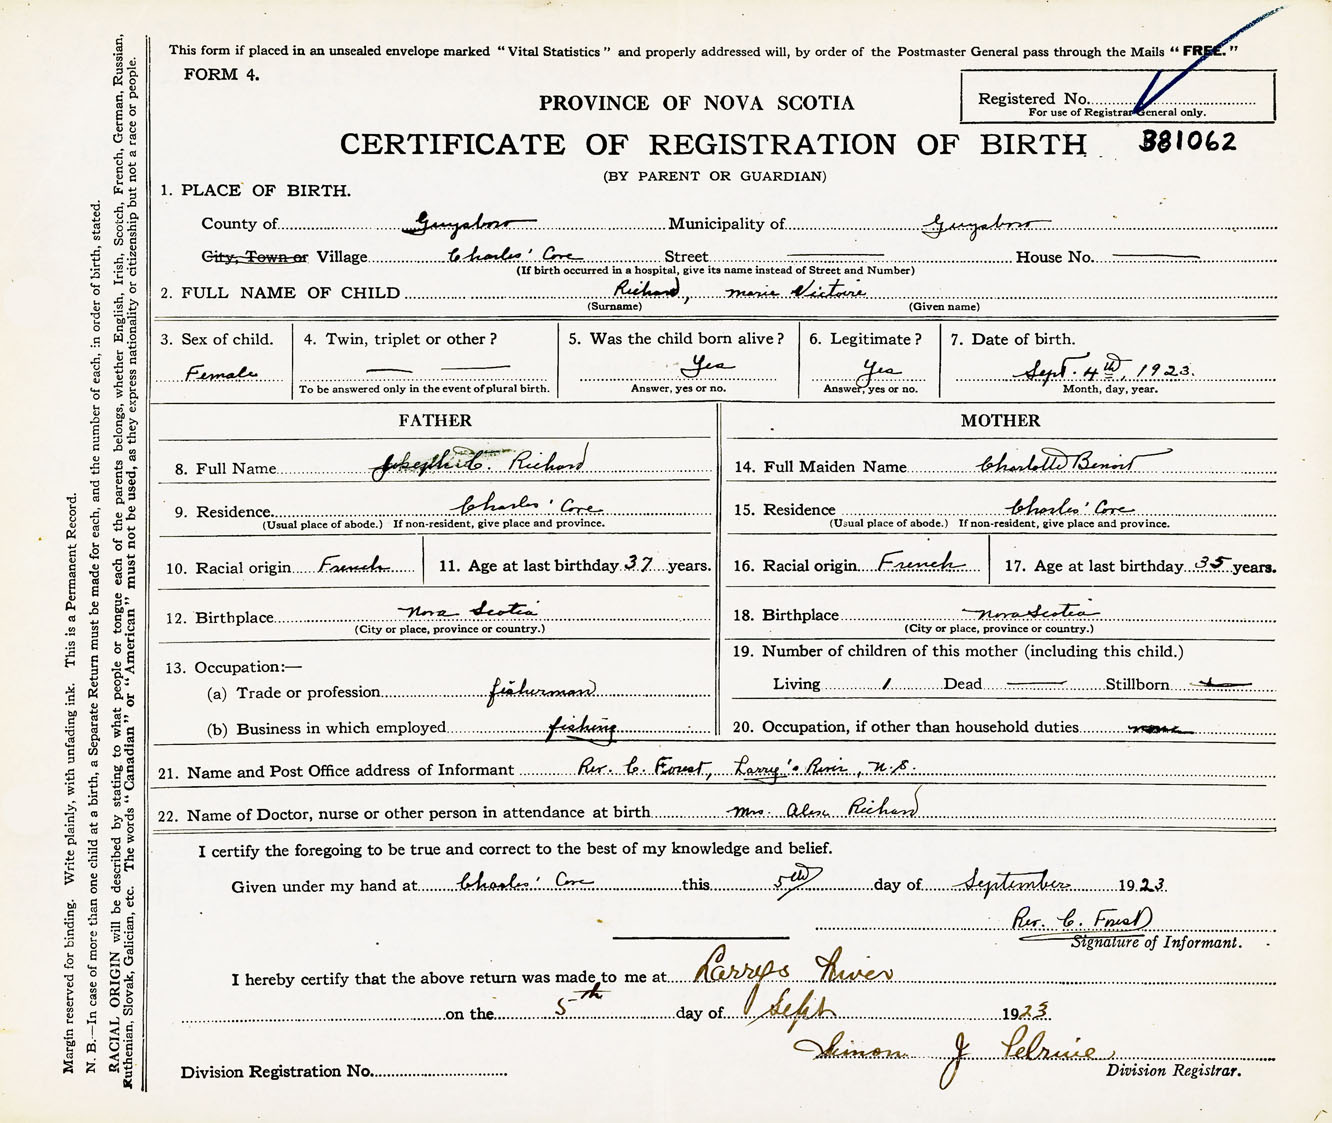 This form if placed in an unsealed envelope marked "Vital Statistics" and properly addressed will, by order of the Postmaster General pass through the Mails "FREE."
FORM 4.
Registered No.
For use of Registrar General only.
PROVINCE OF NOVA SCOTIA
CERTIFICATE OF REGISTRATION OF BIRTH B81062
(BY PARENT OR GUARDIAN)
1. PLACE OF BIRTH.
County of Guysboro Municipality of Guysboro
City, Town or Village Charles' Cove Street — House No. —
(If birth occurred in a hospital, give its name instead of Street and Number)
2. FULL NAME OF CHILD Richard, Marie Victoire
(Surname) (Given name)
3. Sex of child. 4. Twin, triplet or other? 5. Was the child born alive? 6. Legitimate? 7. Date of birth.
Female — — Yes Yes Sept. 4th, 1923.
To be answered only in the event of plural birth. Answer, yes or no. Answer, yes or no. Month, day, year.
FATHER MOTHER
8. Full Name Joseph C. Richard 14. Full Maiden Name Charlotte Benoit
9. Residence Charles' Cove 15. Residence Charles' Cove
(Usual place of abode.) If non-resident, give place and province. (Usual place of abode.) If non-resident, give place and province.
10. Racial origin French 11. Age at last birthday 37 years. 16. Racial origin French 17. Age at last birthday 35 years.
12. Birthplace Nova Scotia 18. Birthplace Nova Scotia
(City or place, province or country.) (City or place, province or country.)
13. Occupation:— 19. Number of children of this mother (including this child.)
(a) Trade or profession fisherman Living 1 Dead — Stillborn
(b) Business in which employed fishing 20. Occupation, if other than household duties none
21. Name and Post Office address of Informant Rev. C. Forest, Larry's River, N.S.
22. Name of Doctor, nurse or other person in attendance at birth Mrs. Alex Richard
I certify the foregoing to be true and correct to the best of my knowledge and belief.
Given under my hand at Charles' Cove this 5th day of September 1923.
Rev. C. Forest
Signature of Informant.
I hereby certify that the above return was made to me at Larrys River
on the 5th day of Sept 1923
Simon J Pelrine
Division Registration No. Division Registrar.
Margin reserved for binding. Write plainly, with unfading ink. This is a Permanent Record.
N. B.—In case of more than one child at a birth, a Separate Return must be made for each, and the number of each, in order of birth, stated.
RACIAL ORIGIN will be described by stating to what people or tongue each of the parents belongs, whether English, Irish, Scotch, French, German, Russian,
Ruthenian, Slovak, Galician, etc. The words "Canadian" or "American" must not be used, as they express nationality or citizenship but not a race or people.